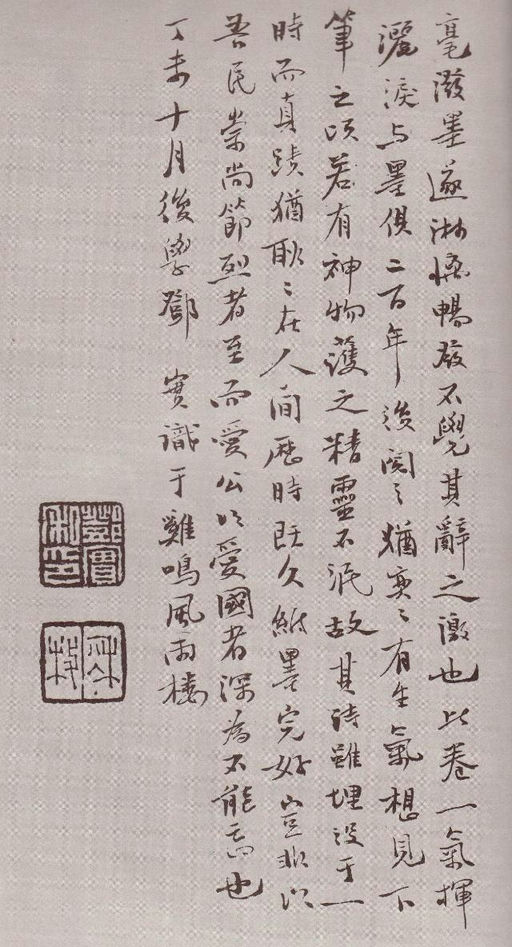 毫潑墨遂淋慯暢發不覺其辭之激也此卷一氣揮
灑淚与墨俱二百年後閱之猶奕々有生氣想見下
筆之頃若有神物護之精靈不泯故其詩雖埋沒于一
時而真蹟猶耿々在人間歷時既久紙墨完好豈非以
吾民崇尚節烈者至而愛公以愛國者深為不能忘也
丁未十月後學鄧 實識于雞鳴風雨樓